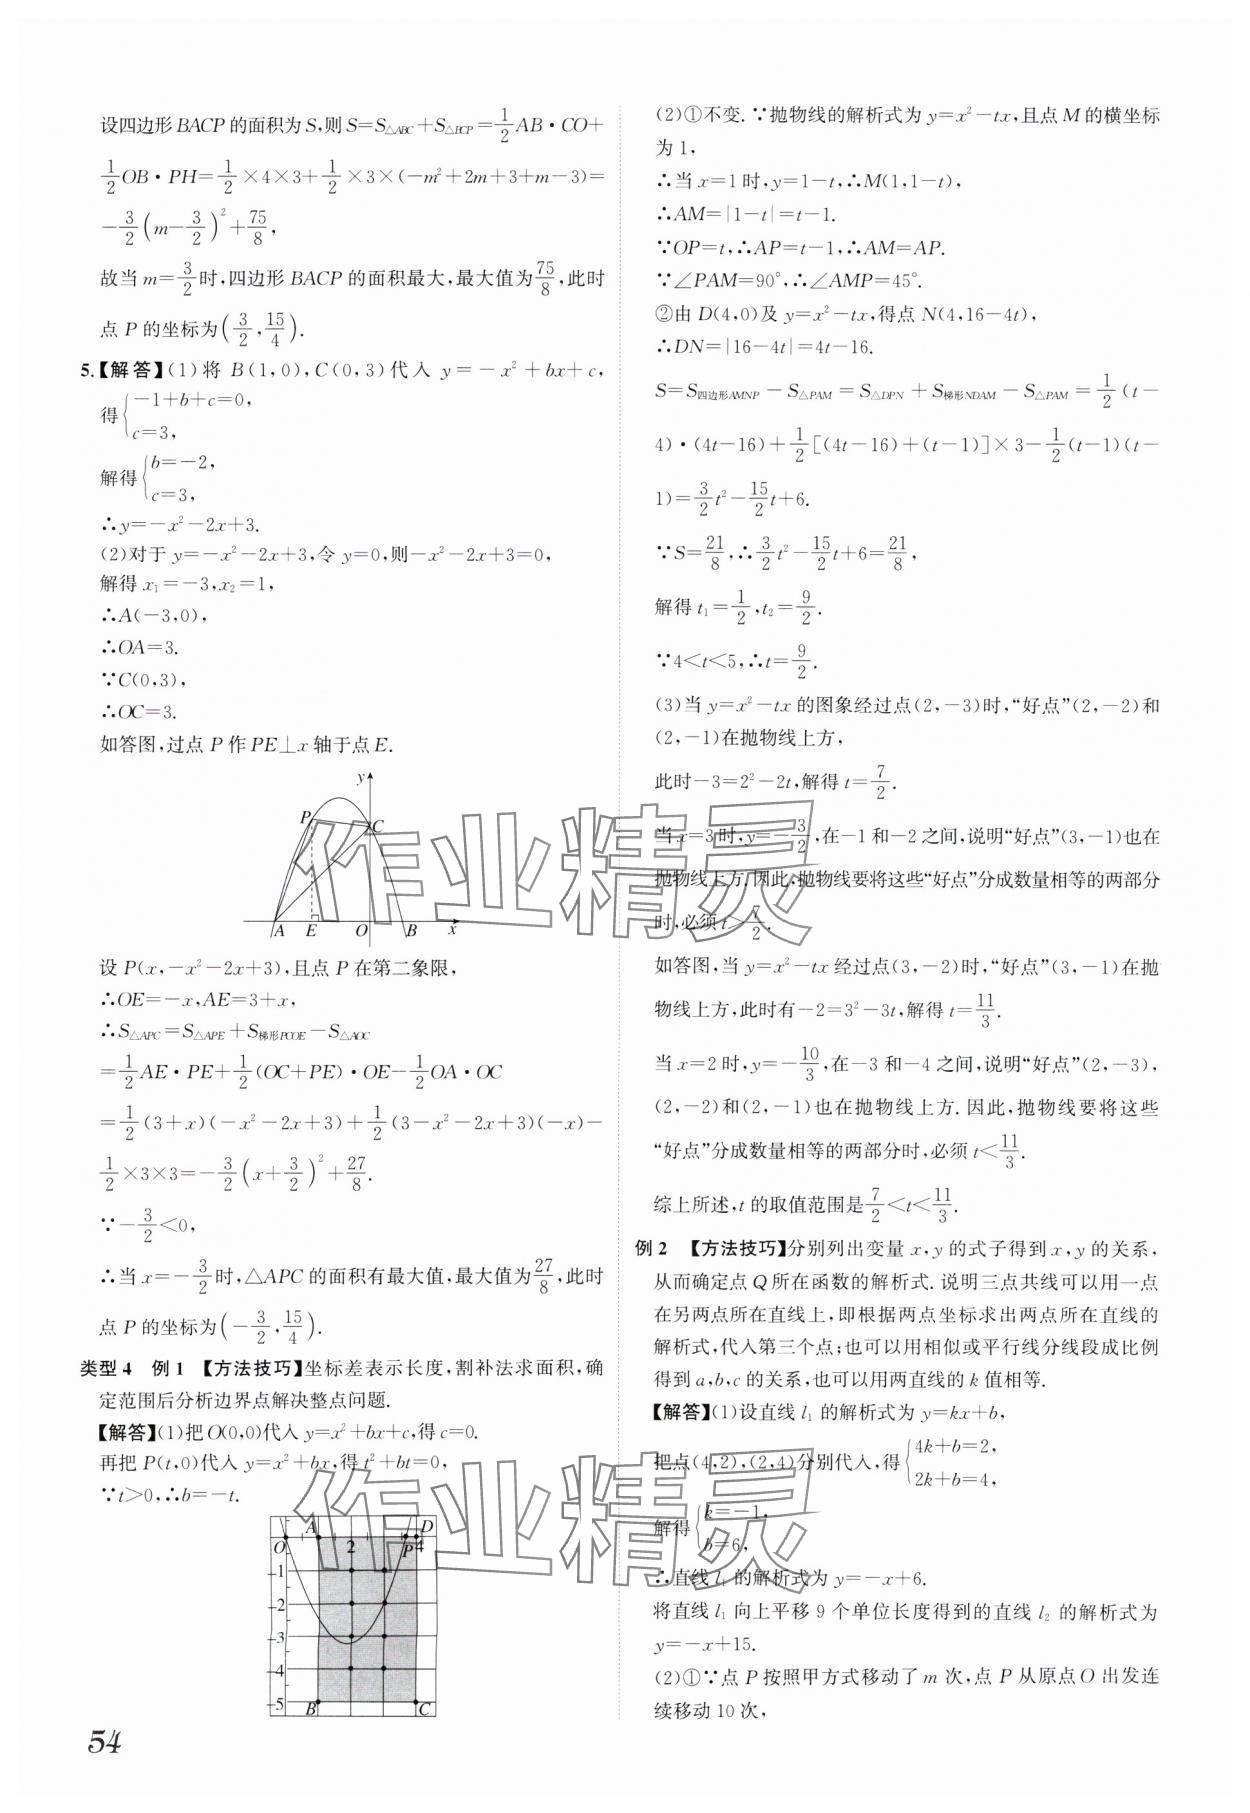 设四边形BACP的面积为S,则S=S△ABC+S△BCP=1/2AB·CO+
1/2OB·PH=1/2×4×3+1/2×3×(-m²+2m+3+m-3)=
-3/2(m-3/2)²+75/8,
故当m=3/2时,四边形BACP的面积最大,最大值为75/8,此时
点P的坐标为(3/2,15/4).
5.【解答】(1)将B(1,0),C(0,3)代入y=-x²+bx+c,
得{-1+b+c=0,
c=3,
解得{b=-2,
c=3,
∴y=-x²-2x+3.
(2)对于y=-x²-2x+3,令y=0,则-x²-2x+3=0,
解得x₁=-3,x₂=1,
∴A(-3,0),
∴OA=3.
∵C(0,3),
∴OC=3.
如答图,过点P作PE⊥x轴于点E.
y
P
C
A E O B x
设P(x,-x²-2x+3),且点P在第二象限,
∴OE=-x,AE=3+x,
∴S△APC=S△APE+S梯形PCOE-S△AOC
=1/2AE·PE+1/2(OC+PE)·OE-1/2OA·OC
=1/2(3+x)(-x²-2x+3)+1/2(3-x²-2x+3)(-x)-
1/2×3×3=-3/2(x+3/2)²+27/8.
∵-3/2<0,
∴当x=-3/2时,△APC的面积有最大值,最大值为27/8,此时
点P的坐标为(-3/2,15/4).
类型4 例1 【方法技巧】坐标差表示长度,割补法求面积,确
定范围后分析边界点解决整点问题.
【解答】(1)把O(0,0)代入y=x²+bx+c,得c=0.
再把P(t,0)代入y=x²+bx,得t²+bt=0,
∵t>0,∴b=-t.
A D
O 2 P 4
-1
-2
-3
-4
-5
B C
54
(2)①不变.∵抛物线的解析式为y=x²-tx,且点M的横坐标
为1,
∴当x=1时,y=1-t,∴M(1,1-t),
∴AM=|1-t|=t-1.
∵OP=t,∴AP=t-1,∴AM=AP.
∵∠PAM=90°,∴∠AMP=45°.
②由D(4,0)及y=x²-tx,得点N(4,16-4t),
∴DN=|16-4t|=4t-16.
S=S四边形AMNP-S△PAM=S△DPN+S梯形NDAM-S△PAM=1/2(t-
4)·(4t-16)+1/2[(4t-16)+(t-1)]×3-1/2(t-1)(t-
1)=3/2t²-15/2t+6.
∵S=21/8,∴3/2t²-15/2t+6=21/8,
解得t₁=1/2,t₂=9/2.
∵4<t<5,∴t=9/2.
(3)当y=x²-tx的图象经过点(2,-3)时,“好点”(2,-2)和
(2,-1)在抛物线上方,
此时-3=2²-2t,解得t=7/2.
当x=3时,y=-3/2,在-1和-2之间,说明“好点”(3,-1)也在
抛物线上方.因此,抛物线要将这些“好点”分成数量相等的两部分
时,必须t>7/2.
如答图,当y=x²-tx经过点(3,-2)时,“好点”(3,-1)在抛
物线上方,此时有-2=3²-3t,解得t=11/3.
当x=2时,y=-10/3,在-3和-4之间,说明“好点”(2,-3),
(2,-2)和(2,-1)也在抛物线上方.因此,抛物线要将这些
“好点”分成数量相等的两部分时,必须t<11/3.
综上所述,t的取值范围是7/2<t<11/3.
例2 【方法技巧】分别列出变量x,y的式子得到x,y的关系,
从而确定点Q所在函数的解析式.说明三点共线可以用一点
在另两点所在直线上,即根据两点坐标求出两点所在直线的
解析式,代入第三个点;也可以用相似或平行线分线段成比例
得到a,b,c的关系,也可以用两直线的k值相等.
【解答】(1)设直线l₁的解析式为y=kx+b,
把点(4,2),(2,4)分别代入,得{4k+b=2,
2k+b=4,
解得{k=-1,
b=6,
∴直线l₁的解析式为y=-x+6.
将直线l₁向上平移9个单位长度得到的直线l₂的解析式为
y=-x+15.
(2)①∵点P按照甲方式移动了m次,点P从原点O出发连
续移动10次,
作业精灵
作业精灵